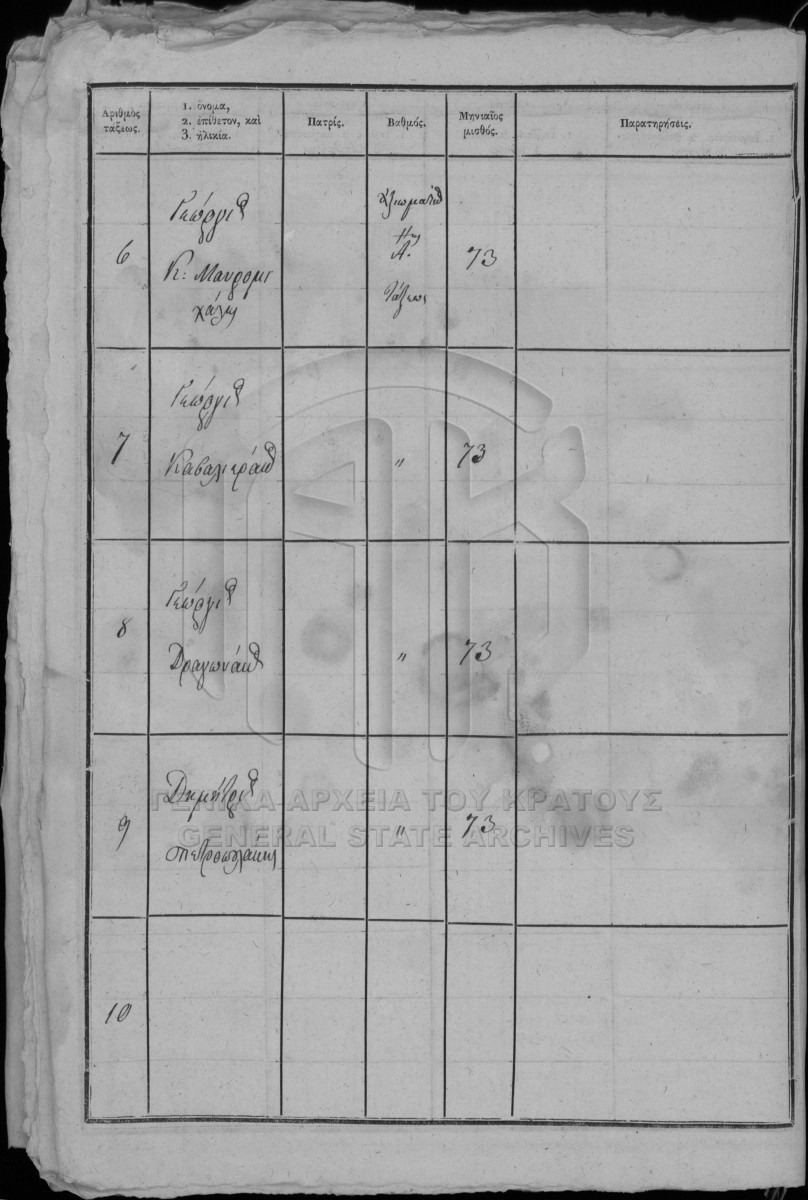 Αριθμὸς
τάξεως.
1. ὄνομα,
2. ἐπίθετον, καὶ
3. ἡλικία.
Πατρίς.
Βαθμός.
Μηνιαῖος
μισθός.
Παρατηρήσεις.
6
Γεώργιος
Κ: Μαυρομι
χάλης
Ἀξιωματικὸς
της
Α.
Τάξεως
73
7
Γεώργιος
Καβαλιεράκος
"
73
8
Γεώργιος
Δραγωνάκος
"
73
9
Δημήτριος
Πετροπουλάκης
"
73
10
ΓΕΝΙΚΑ ΑΡΧΕΙΑ ΤΟΥ ΚΡΑΤΟΥΣ
GENERAL STATE ARCHIVES